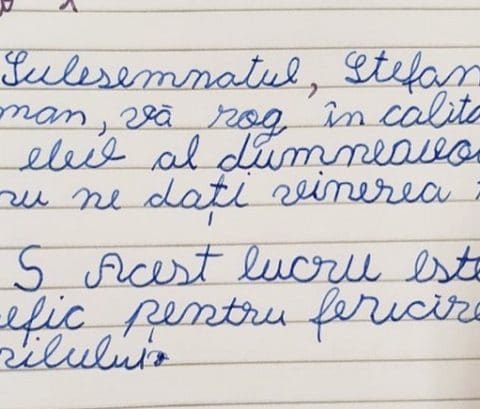 Sulesemnatul, Stefan
man, vă rog în calita
eleil al dumneavoa
nu ne dați vinerea
S Acest lucru este
efic pentru fericire
rilului